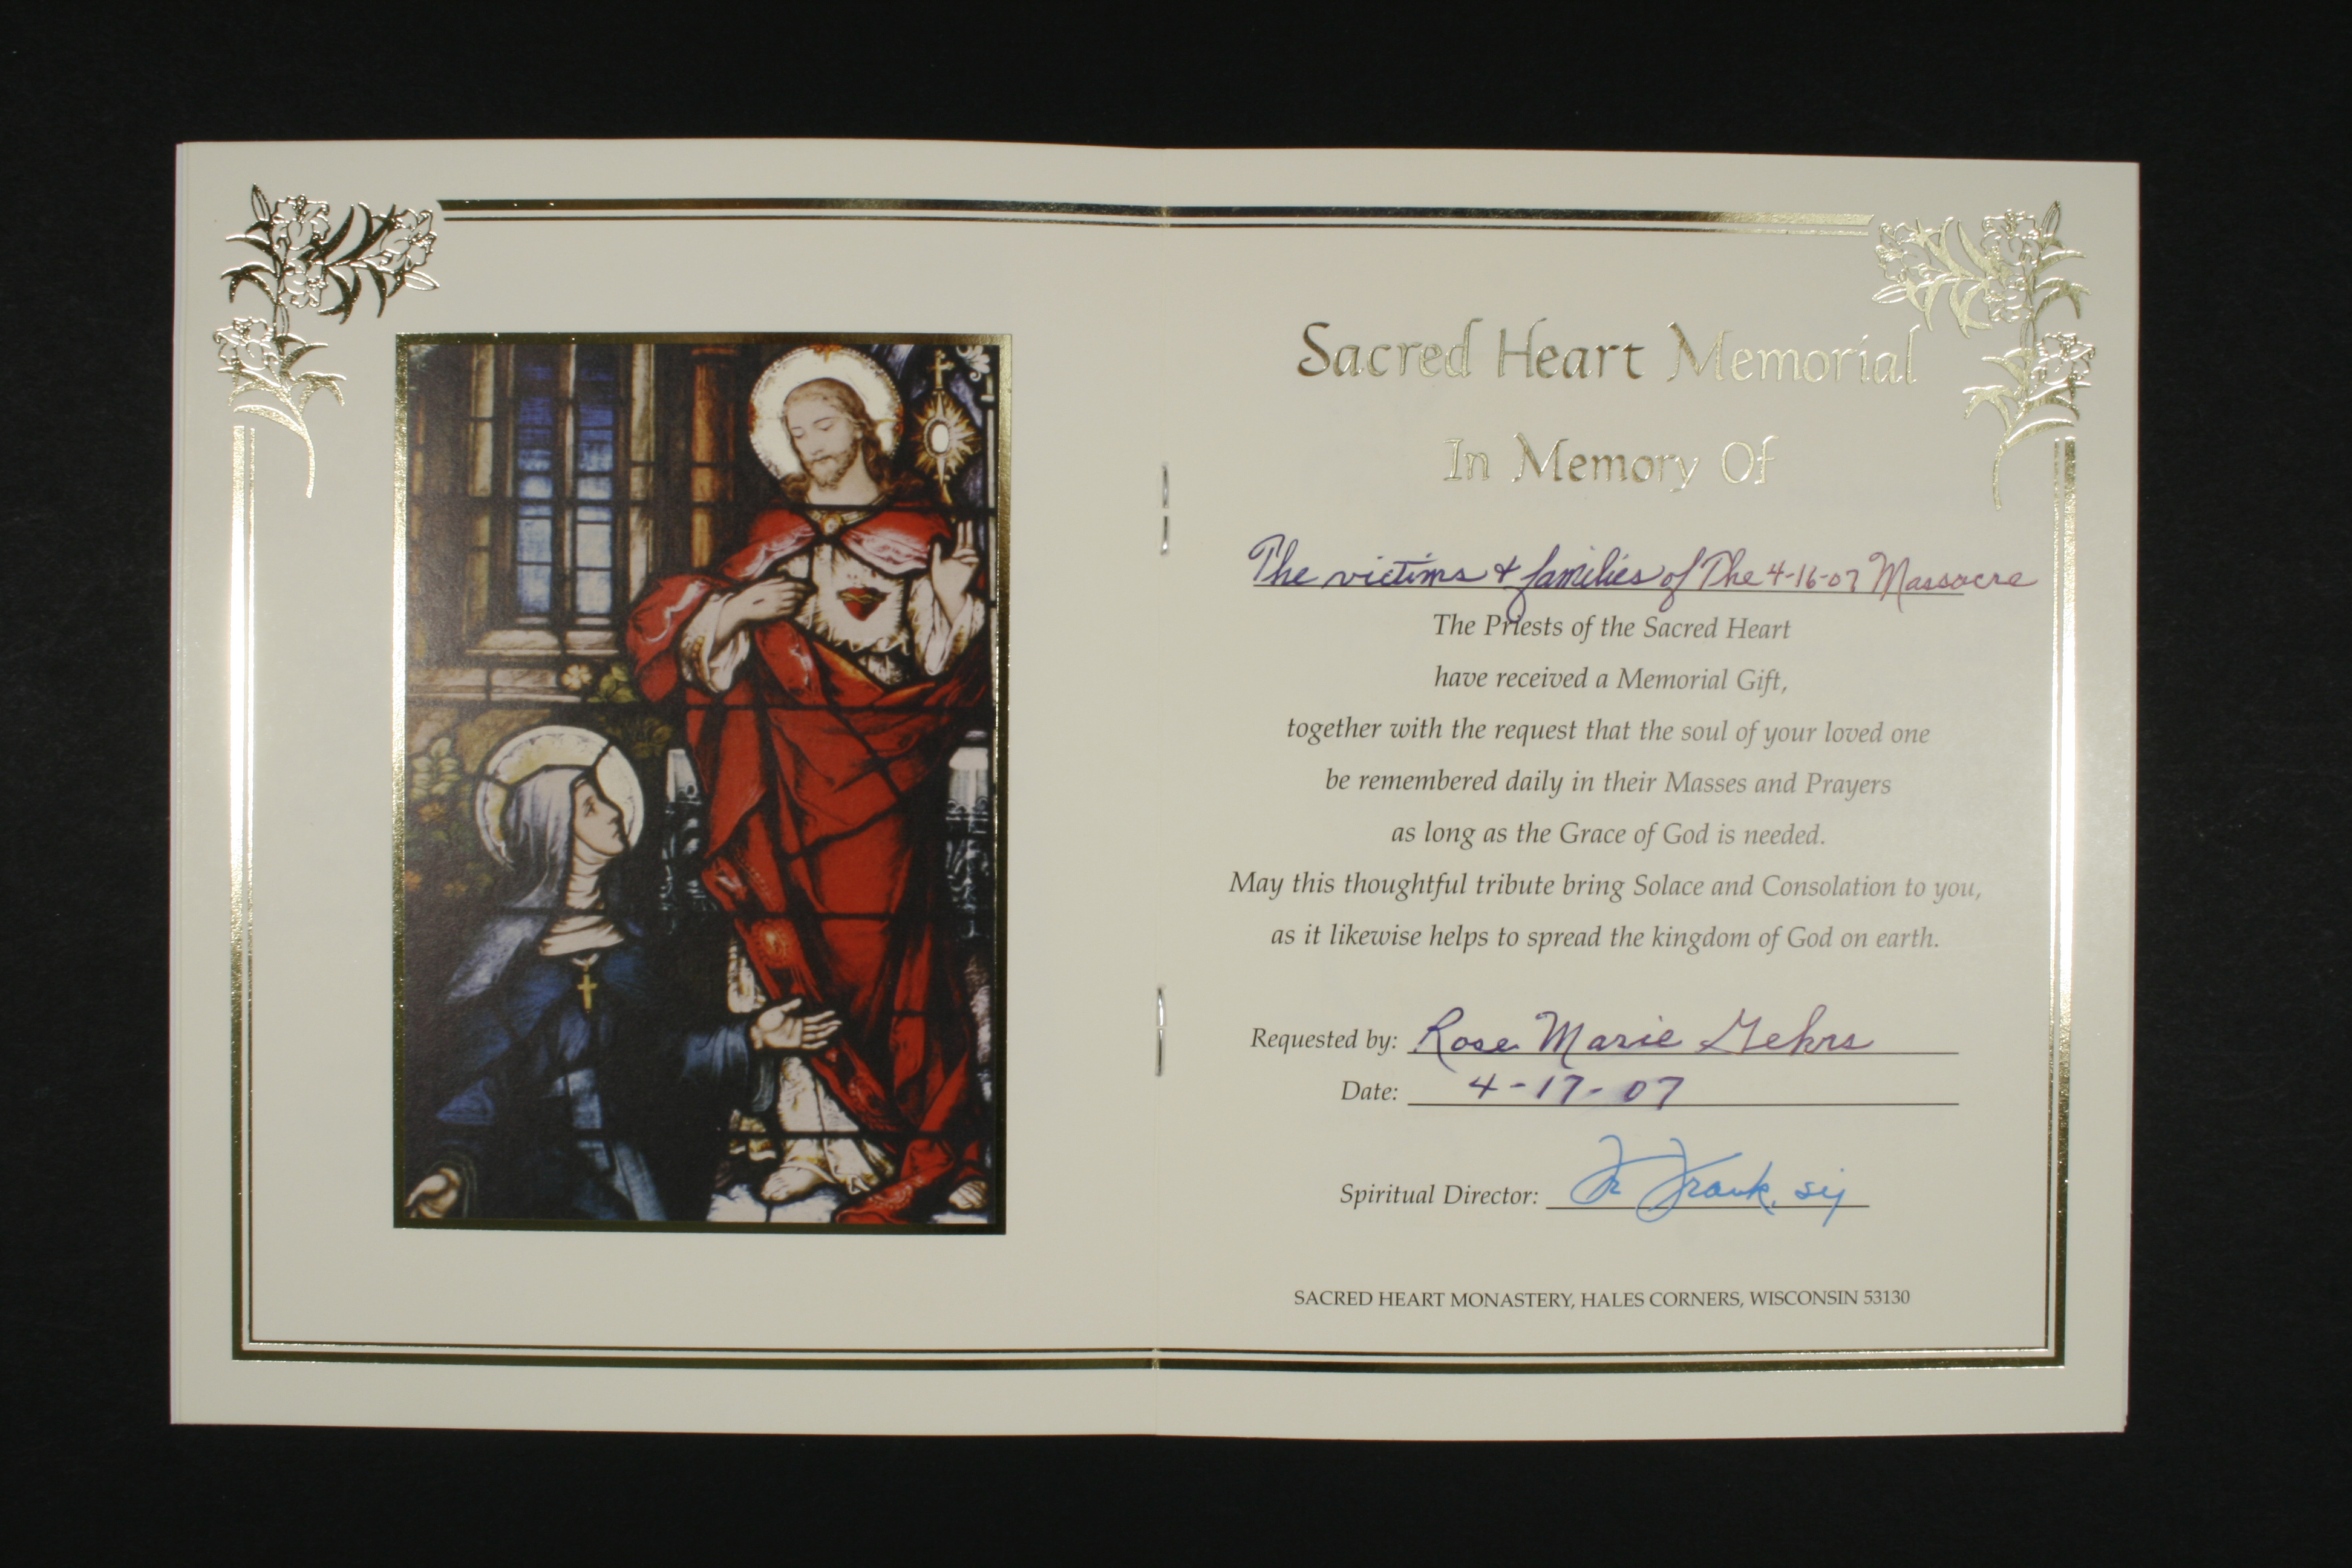 Sacred Heart Memorial
In Memory Of
The victims & families of The 4-16-07 Massacre
The Priests of the Sacred Heart
have received a Memorial Gift,
together with the request that the soul of your loved one
be remembered daily in their Masses and Prayers
as long as the Grace of God is needed.
May this thoughtful tribute bring Solace and Consolation to you,
as it likewise helps to spread the kingdom of God on earth.
Requested by: Rose Marie Gehrs
Date: 4-17-07
Spiritual Director: Fr Frank, scj
SACRED HEART MONASTERY, HALES CORNERS, WISCONSIN 53130